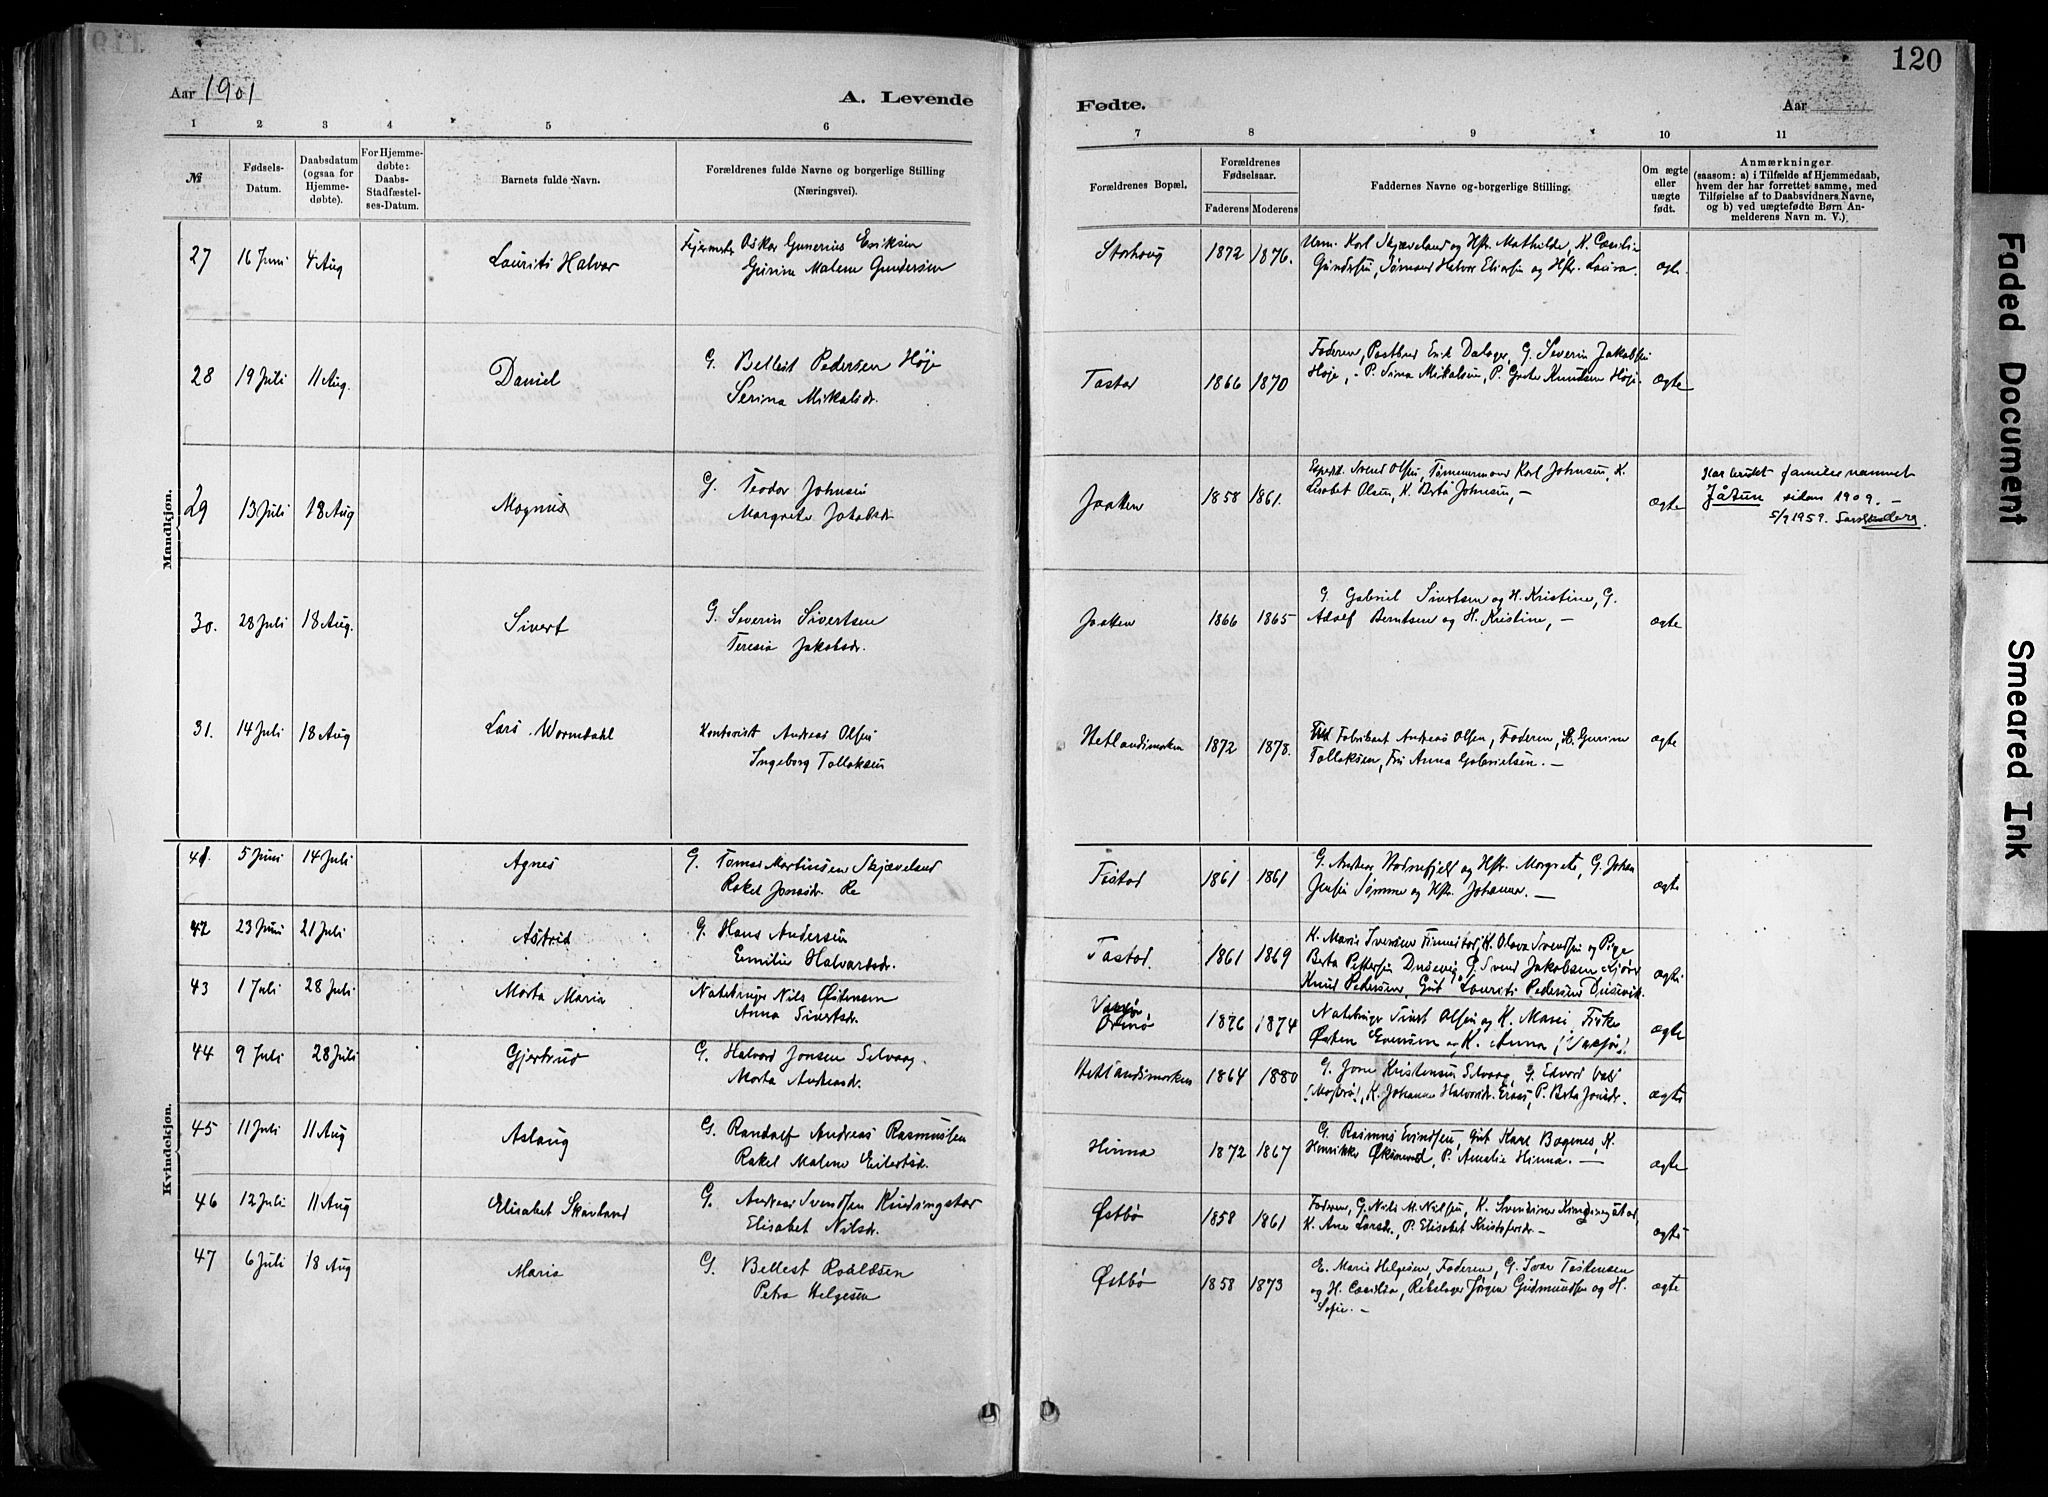 120
Aar 1901
A. Levende
Fødte.
Aar
1 2 3 4 5 6 7 8 9 10 11
№
Fødsels-
Datum.
Daabsdatum
(ogsaa for
Hjemme-
døbte).
For Hjemme-
døbte:
Daabs-
Stadfæstel-
ses-Datum.
Barnets fulde Navn.
Forældrenes fulde Navne og borgerlige Stilling
(Næringsvei).
Forældrenes Bopæl.
Forældrenes
Fødselsaar.
Faderens Moderens
Faddernes Navne og borgerlige Stilling.
Om ægte
eller
uægte
født.
Anmærkninger
(saasom: a) i Tilfælde af Hjemmedaab,
hvem der har forrettet samme, med
Tilføielse af to Daabsvidners Navne,
og b) ved uægtefødte Børn An-
melderens Navn m. V.).
Mandkjøn.
27 16 Juni 4 Aug Lauritz Halvor
Oskar Gunerius Eriksen
Gurine Malene Gundersen
Storhoug 1872 1876.
Karl Skjæveland og Hstr. Mathilde, K. Cecilie
Gundersen, Halvor og Hstr. Laura.
ægte.
28 19 Juli 11 Aug. Daniel
G. Bellest Pedersen Høje
Serina Mikalsdr.
Tastad 1866 1870
Faderen, Postbud Erik Dalager, G. Severin Jakobsen
Høje, - P. Sina Mikalsen, P. Grete Knudsen Høje.
ægte
29 13 Juli 18 Aug Magnus
G. Teodor Johnsen
Margrete Jakobsdr
Jaatten 1858 1861.
Exped. Svend Olsen, Tømmermand Karl Johnsen, K.
Lisabet Olsen, K. Berta Johnsen, -
ægte
Har brukt familienavnet
Jåtun siden 1909. -
5/9 1959.
30. 28 Juli 18 Aug. Sivert
G. Severin Sivertsen
Teresia Jakobsdr.
Jaatten 1866 1865
G. Gabriel Sivertsen og H. Kristine, G.
Adolf Berntsen og H. Kristine, -
ægte
31. 14 Juli 18 Aug Lars Wormdahl
Kontorist Andreas Olsen
Ingeborg Tollaksen
Hetlandsmarken 1872 1878.
Fabrikant Andreas Olsen, Faderen, H. Gurine
Tollaksen, Frk Anna Gabrielsen. -
ægte
Kvindekjøn.
41. 5 Juni 14 Juli Agnes
G. Tomas Martinsen Skjæveland
Rakel Jonasdr. Re
Tastad 1861 1861
G. Andreas Hodnefjeld og Hstr. Margrete, G. Johan
Jensen Sømme og Hstr. Johanna. -
ægte
42 23 Juni 21 Juli Astrid
G. Hans Andersen
Emilie Halvardsdr.
Tastad. 1861 1869
K. Marie Iversen Finnestad, K. Olava Svendsen og Pige
Berta Pettersen Dusevig, G. Svend Jakobsen
Knud Pedersen, Gut Lauritz Pedersen Dusevik.
ægte
43 1 Juli 28 Juli Marta Maria
Notebruger Nils Østensen
Anna Sivertsdr.
Vassø
Ormø 1876 1874
Notebruger Sivert Olsen og K. Marie, Fisker
Østen Evensen og K. Anna (Vassø).
ægte
44 9 Juli 28 Juli Gjertrud
G. Halvard Jonsen Selvaag.
Marta Andreasdr.
Hetlandsmarken 1864 1880
G. Jone Kristensen Selvaag, G. Edvard
(Mosterø), K. Johanne Halvorsdr. P. Berta Jonsdr.
ægte
45 11 Juli 11 Aug Aslaug
G. Randolf Andreas Rasmussen
Rakel Malene Eilertsdr.
Hinna 1872 1867
G. Rasmus Evindsen, Gut Karl Bogenes, K.
Henrikke P. Amalie Hinna. -
ægte
46 12 Juli 11 Aug Elisabet Skavland
G. Andreas Svendsen Kindingstad
Elisabet Nilsdr.
Østbø 1858 1861
Faderen, G. Nils M. Nilsen, K. Svendine Kindingstad,
K. Ane Larsdr, P. Elisabet Kristofersdr -
ægte
47 6 Juli 18 Aug Maria
G. Bellest Roaldsen
Petra Helgesen
Østbø 1858 1873
E. Marie Helgesen, Faderen, G. Ivar Tostensen
og H. Cecilia, Rebslager Jørgen Gudmundsen og H.
Sofie. -
ægte
Faded Document
Smeared Ink